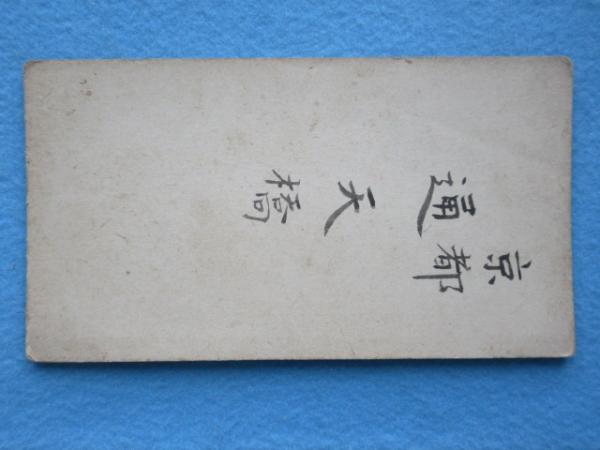 京都
通天橋